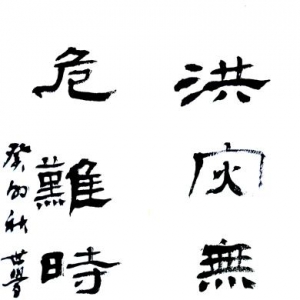 洪灾無
危難時
癸卯秋